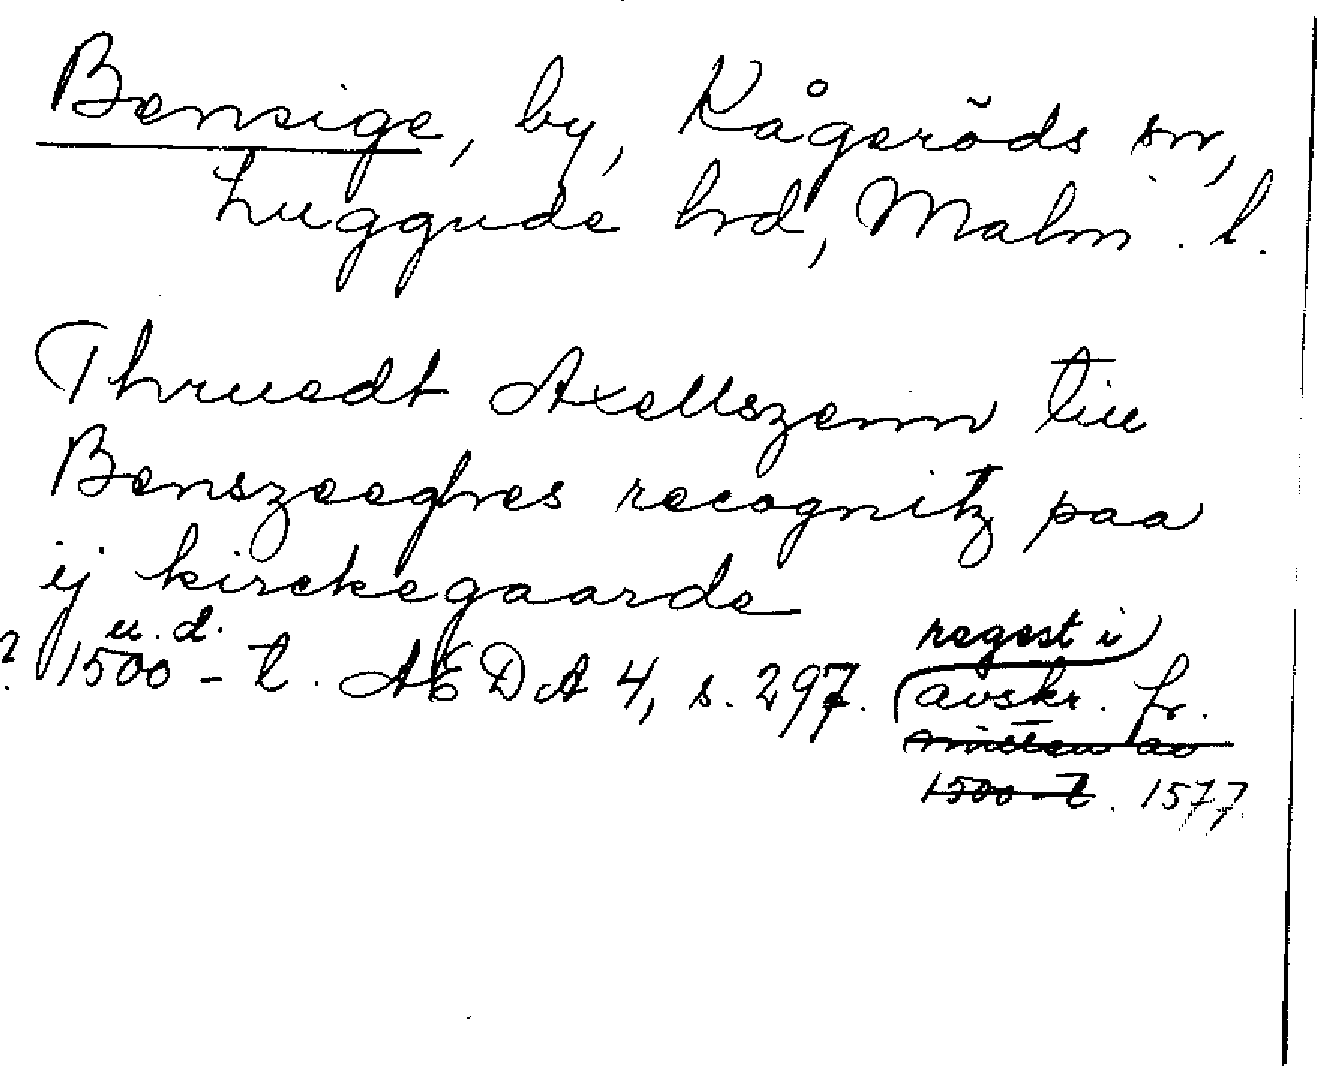 Bensige, by, Kågeröds sn,
Luggude hrd, Malm. l.
Thruedt Axellszenn till
Benszeeghres recognitz paa
ij kirckegaarde
u. d.
? 1500-t. ÆDA 4, s. 297. (regest i)
avskr. fr.
mitten av
1500-t. 1577